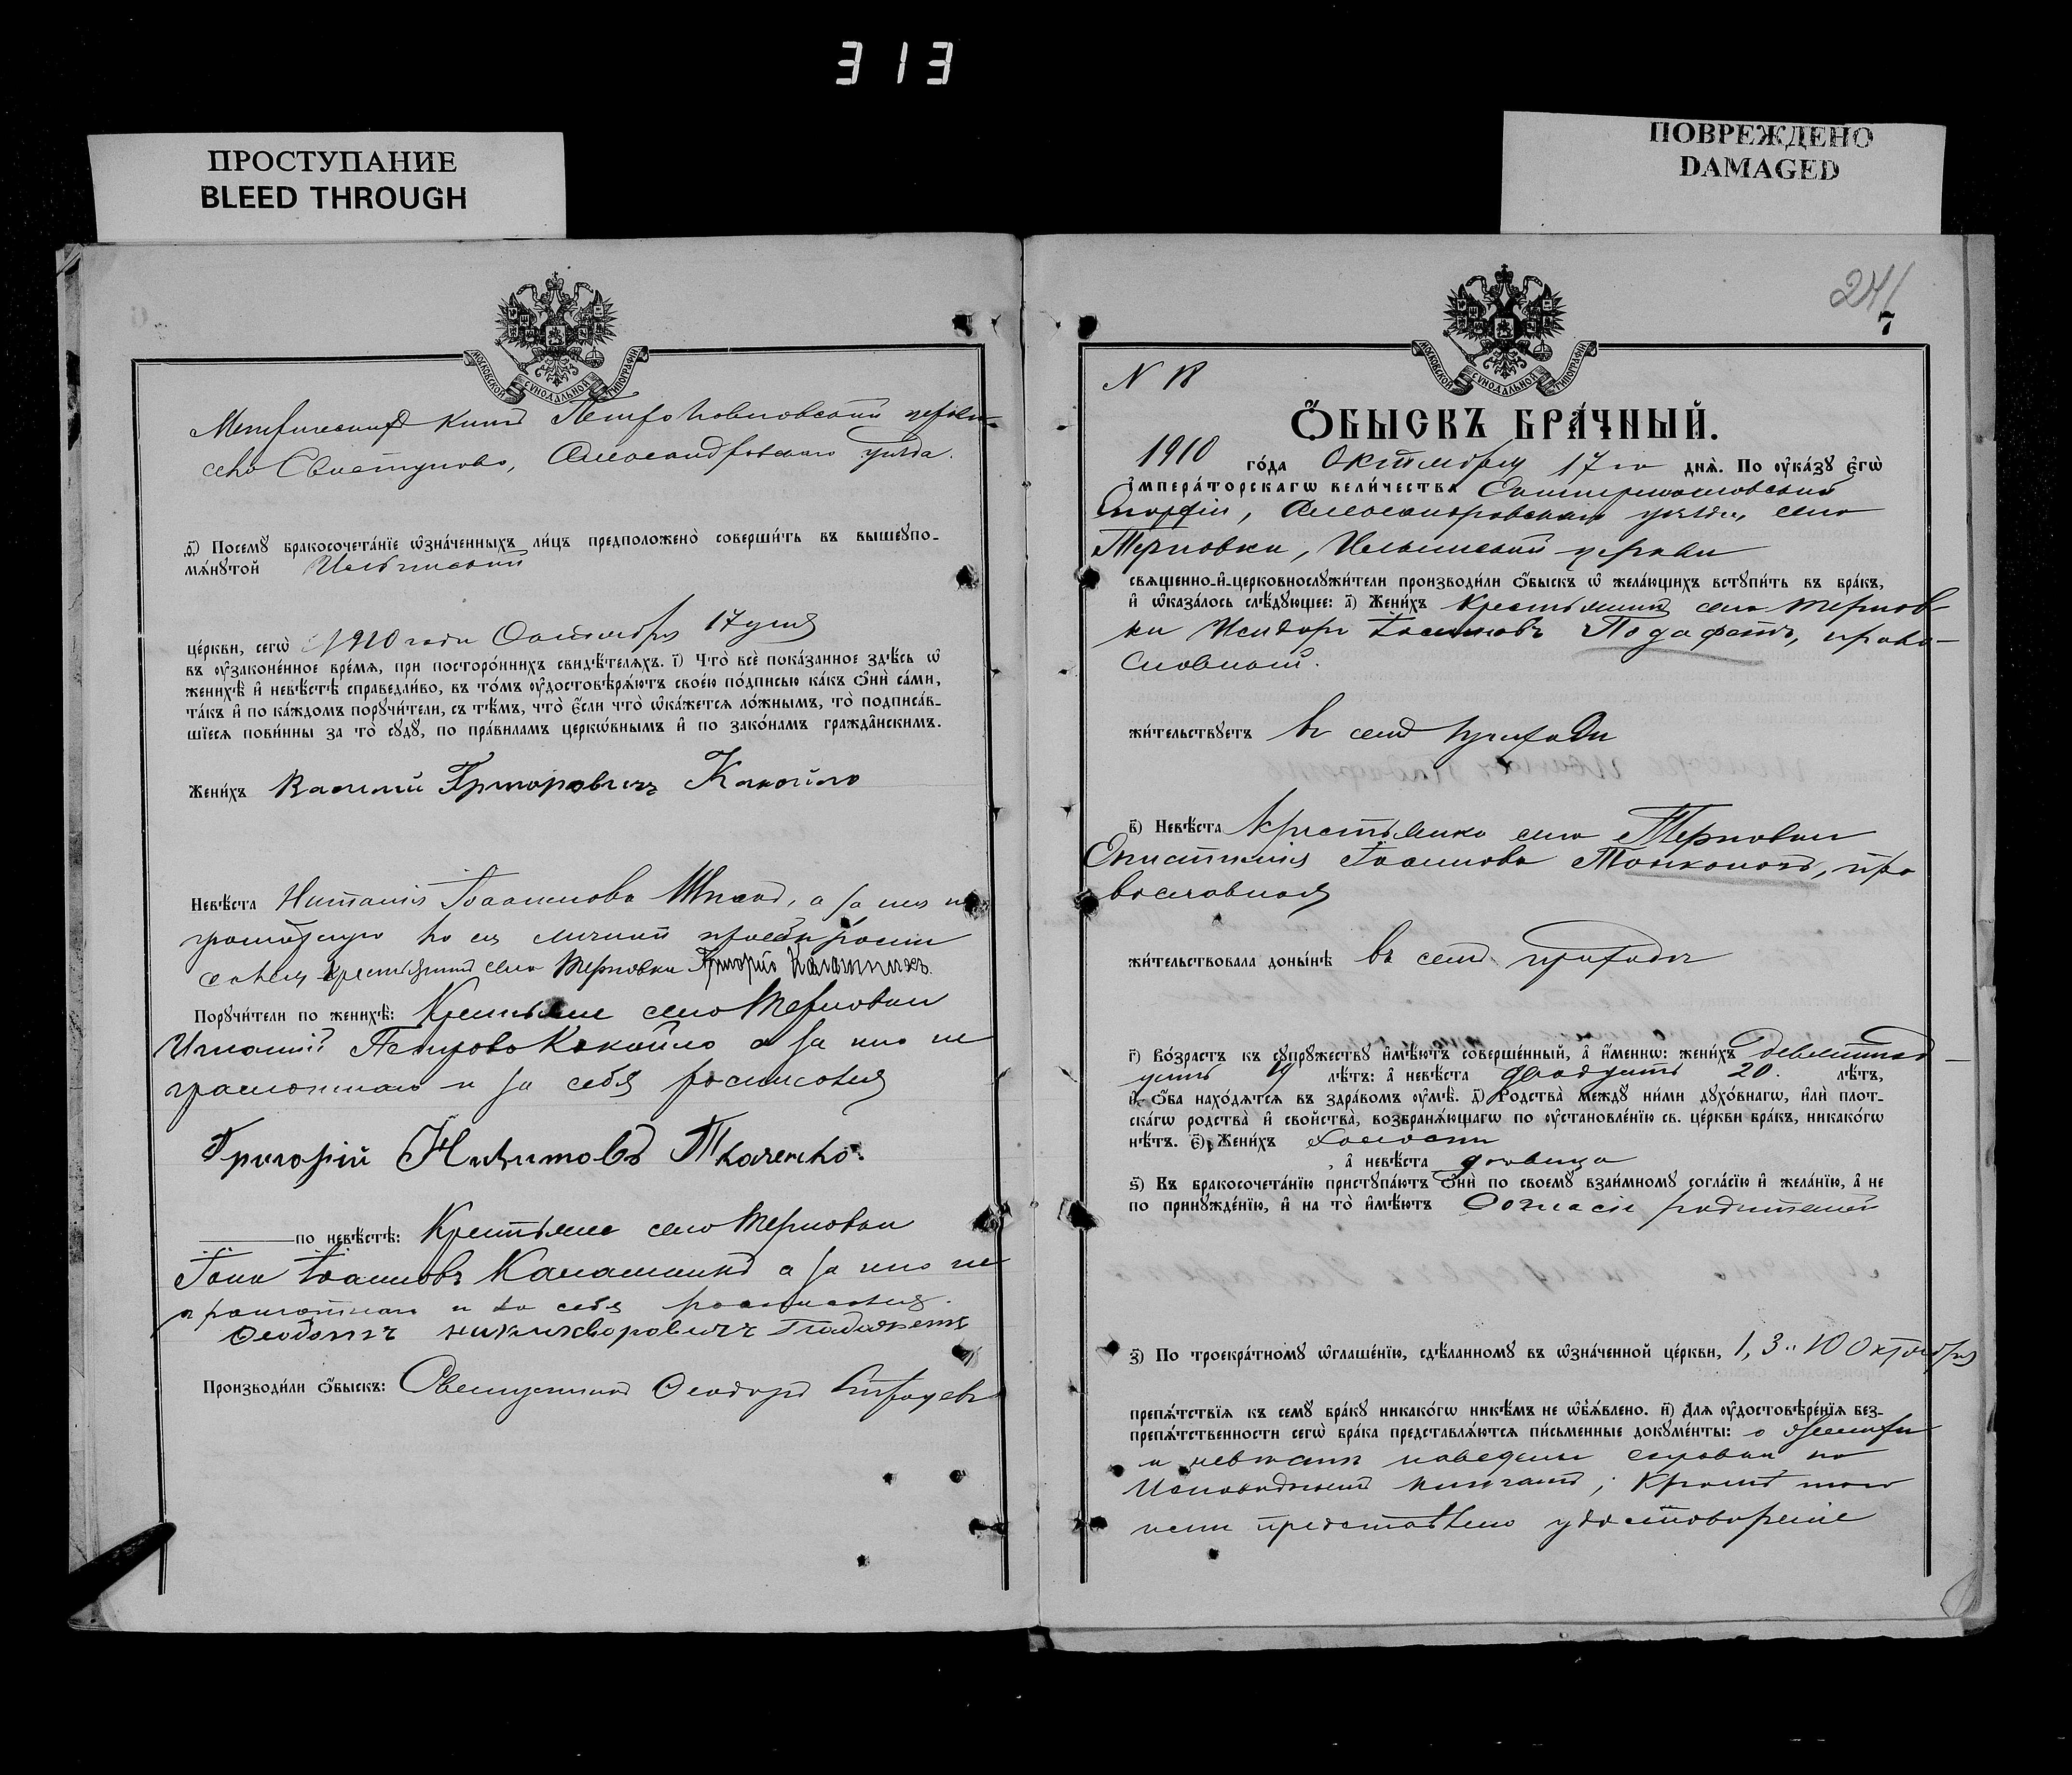 313
ПРОСТУПАНИЕ
BLEED THROUGH
ПОВРЕЖДЕНО
DAMAGED
МОСКОВСКОЙ СУНОДАЛЬНОЙ ТИПОГРАФІИ
село Свистуново, Александровскаго уѣзда.
ѳ҃) Посемꙋ бракосочета́нїе ѡ҆зна́ченныхъ ли́цъ предположено̀ соверши́ть въ вышеꙋпо-
мѧ́нꙋтой Ильинской
це́ркви, сегѡ̀ 1910 года Октября 17 дня
въ ᲂу҆законе́нное вре́мѧ, при посторо́ннихъ свидѣ́телѧхъ. і҃) Что̀ всѐ пока́занное здѣ́сь ѡ҆
женихѣ̀ и҆ невѣ́стѣ справедли́во, въ то́мъ ᲂу҆достовѣрѧ́ютъ свое́ю по́дписью ка́къ ѻ҆нѝ са́ми,
та́къ и҆ по ка́ждомъ порꙋчи́тели, съ тѣ́мъ, что̀ є҆́сли что̀ ѡ҆ка́жетсѧ ло́жнымъ, то̀ подписа́в-
шїесѧ пови́нны за то̀ сꙋдꙋ̀, по пра́виламъ церко́внымъ и҆ по зако́намъ гражда́нскимъ.
Жени́хъ Василий Григоровичъ Какойло
Невѣ́ста Наталія Іоаннова, а за нея не
грамотную по ея личной просьбѣ росписался
крестьянинъ села Терновки Григорій Калашникъ.
Порꙋчи́тели по женихѣ̀: Крестьяне села Терновки
Игнатій Петровъ Какойло а за него не
грамотнаго и за себя росписался
Григорій Никитовъ Ткаченко.
по невѣ́стѣ: Крестьяне села Терновки
Іоаннъ Іоанновъ Калашникъ а за него не
грамотнаго и за себя росписался
никихворовичъ
Производи́ли ѻ҆́быскъ: Священникъ Ѳеодоръ
241
7
МОСКОВСКОЙ СУНОДАЛЬНОЙ ТИПОГРАФІИ
N 18
Ѻ҆́БЫСКЪ БРА́ЧНЫЙ.
1910 го́да Октября 17го днѧ̀. По ᲂу҆ка́зꙋ є҆гѡ̀
і҆мпера́торскагѡ вели́чества Екатеринославской
Епархіи, Александровскаго уѣзда, села
Терновки, Ильинской церкви
свѧще́нно-и҆-церковнослꙋжи́тели производи́ли ѻ҆́быскъ ѡ҆ жела́ющихъ встꙋпи́ть въ бра́къ,
и҆ ѡ҆каза́лось слѣ́дꙋющее: а҃) Жени́хъ Крестьянинъ села Тернов-
ки Исидоръ Іоанновъ Подафетъ, право-
славный.
жи́тельствꙋетъ въ семъ приходѣ
в҃) Невѣ́ста Крестьянка села Терновки
Епистимія Іоаннова, пра
вославная
жи́тельствовала доны́нѣ въ семъ приходѣ
г҃) Во́зрастъ къ сꙋпрꙋ́жествꙋ и҆мѣ́ютъ соверше́нный, а҆ и҆́менно: жени́хъ девятнад-
цать 19 лѣ́тъ: а҆ невѣ́ста двадцать 20. лѣ́тъ,
и҆ ѻ҆́ба нахо́дѧтсѧ въ здра́вомъ ᲂу҆мѣ̀. д҃) Родства̀ междꙋ̀ ни́ми дꙋхо́внагѡ, и҆лѝ плот-
ска́гѡ родства̀ и҆ сво́йства, возбранѧ́ющагѡ по ᲂу҆становле́нїю св. це́ркви бра́къ, никако́гѡ
нѣ́тъ. є҃) Жени́хъ холостъ
, а҆ невѣ́ста дѣвица
ѕ҃) Къ бракосочета́нїю пристꙋпа́ютъ ѻ҆нѝ по своемꙋ̀ взаи́мномꙋ согла́сїю и҆ жела́нїю, а҆ не
по принꙋжде́нїю, и҆ на то̀ и҆мѣ́ютъ Согласіе родителей
з҃) По троекра́тномꙋ ѡ҆глаше́нїю, сдѣ́ланномꙋ въ ѡ҆зна́ченной це́ркви, 1, 3 и 10 Октября
препѧ́тствїѧ къ семꙋ̀ бра́кꙋ никако́гѡ никѣ́мъ не ѡ҆б̾ѧ́влено. и҃) Длѧ ᲂу҆достовѣре́нїѧ без-
препѧ́тственности сегѡ̀ бра́ка представлѧ́ютсѧ пи́сьменные докꙋме́нты: о женихѣ
и невѣстѣ наведены справки по
Исповѣднымъ книгамъ; Кромѣ того
представлено удостовѣреніе